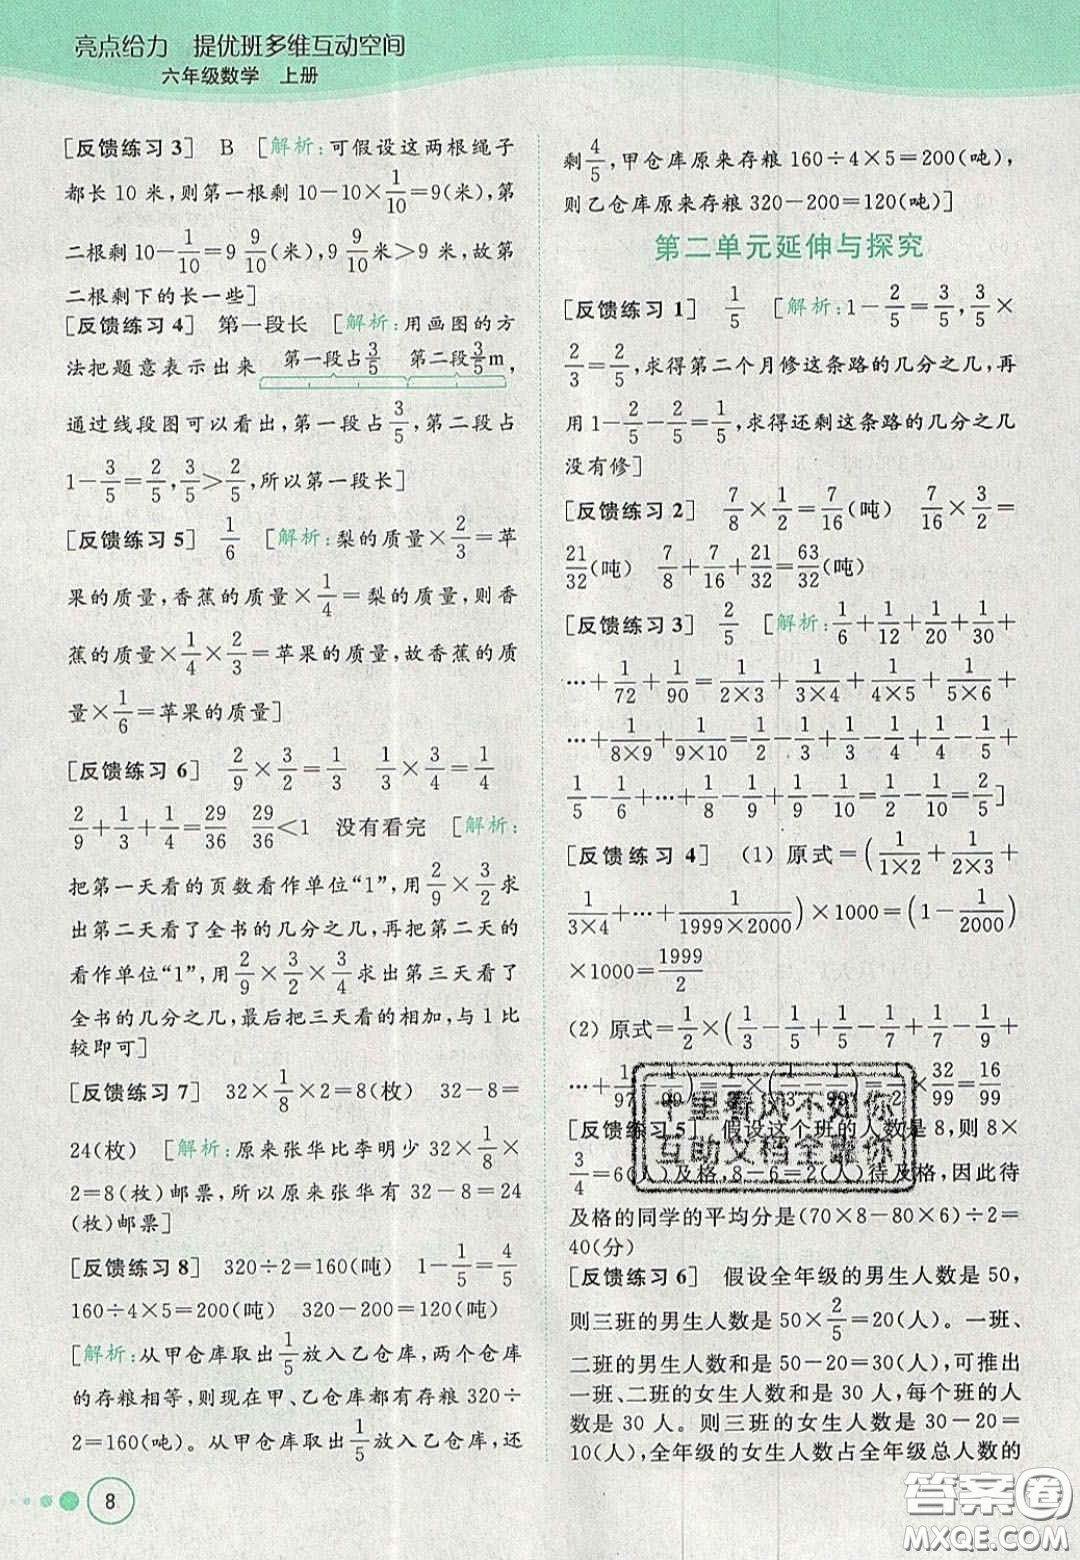 亮点给力 提优班多维互动空间
六年级数学 上册
[反馈练习3] B [解析:可假设这两根绳子
都长10米,则第一根剩10-10×1/10=9(米),第
二根剩10-1/10=9 9/10(米),9 9/10米>9米,故第
二根剩下的长一些]
[反馈练习4] 第一段长 [解析:用画图的方
法把题意表示出来 第一段占3/5 第二段3/5m,
通过线段图可以看出,第一段占3/5,第二段占
1-3/5=2/5,3/5>2/5,所以第一段长]
[反馈练习5] 1/6 [解析:梨的质量×2/3=苹
果的质量,香蕉的质量×1/4=梨的质量,则香
蕉的质量×1/4×2/3=苹果的质量,故香蕉的质
量×1/6=苹果的质量]
[反馈练习6] 2/9×3/2=1/3 1/3×3/4=1/4
2/9+1/3+1/4=29/36 29/36<1 没有看完 [解析:
把第一天看的页数看作单位“1”,用2/9×3/2求
出第二天看了全书的几分之几,再把第二天的
看作单位“1”,用2/9×3/2×3/4求出第三天看了
全书的几分之几,最后把三天看的相加,与1比
较即可]
[反馈练习7] 32×1/8×2=8(枚) 32-8=
24(枚) [解析:原来张华比李明少32×1/8×
2=8(枚)邮票,所以原来张华有32-8=24
(枚)邮票]
[反馈练习8] 320÷2=160(吨) 1-1/5=4/5
160÷4×5=200(吨) 320-200=120(吨)
[解析:从甲仓库取出1/5放入乙仓库,两个仓库
的存粮相等,则现在甲、乙仓库都有存粮320÷
2=160(吨)。从甲仓库取出1/5放入乙仓库,还
8
剩4/5,甲仓库原来存粮160÷4×5=200(吨),
则乙仓库原来存粮320-200=120(吨)]
第二单元延伸与探究
[反馈练习1] 1/5 [解析:1-2/5=3/5,3/5×
2/3=2/5,求得第二个月修这条路的几分之几,再
用1-2/5-2/5=1/5,求得还剩这条路的几分之几
没有修]
[反馈练习2] 7/8×1/2=7/16(吨) 7/16×3/2=
21/32(吨) 7/8+7/16+21/32=63/32(吨)
[反馈练习3] 2/5 [解析:1/6+1/12+1/20+1/30+
…+1/72+1/90=1/2×3+1/3×4+1/4×5+1/5×6+
…+1/8×9+1/9×10=1/2-1/3+1/3-1/4+1/4-1/5+
1/5-1/6+…+1/8-1/9+1/9-1/10=1/2-1/10=2/5]
[反馈练习4] (1) 原式=(1/1×2+1/2×3+
1/3×4+…+1/1999×2000)×1000=(1-1/2000)
×1000=1999/2
(2) 原式=1/2×(1/3-1/5+1/5-1/7+1/7-1/9+
…+1/97-1/99)=1/2×(1/3-1/99)=1/2×32/99=16/99
[反馈练习5] 假设这个班的人数是8,则8×
3/4=6(人)及格,8-6=2(人)待及格,因此待
及格的同学的平均分是(70×8-80×6)÷2=
40(分)
[反馈练习6] 假设全年级的男生人数是50,
则三班的男生人数是50×2/5=20(人)。一班、
二班的男生人数和是50-20=30(人),可推出
一班、二班的女生人数和是30人,每个班的人
数是30人。则三班的女生人数是30-20=
10(人),全年级的女生人数占全年级总人数的
十里春风不如你
互助文档全靠你
答案圈
MXQE.COM